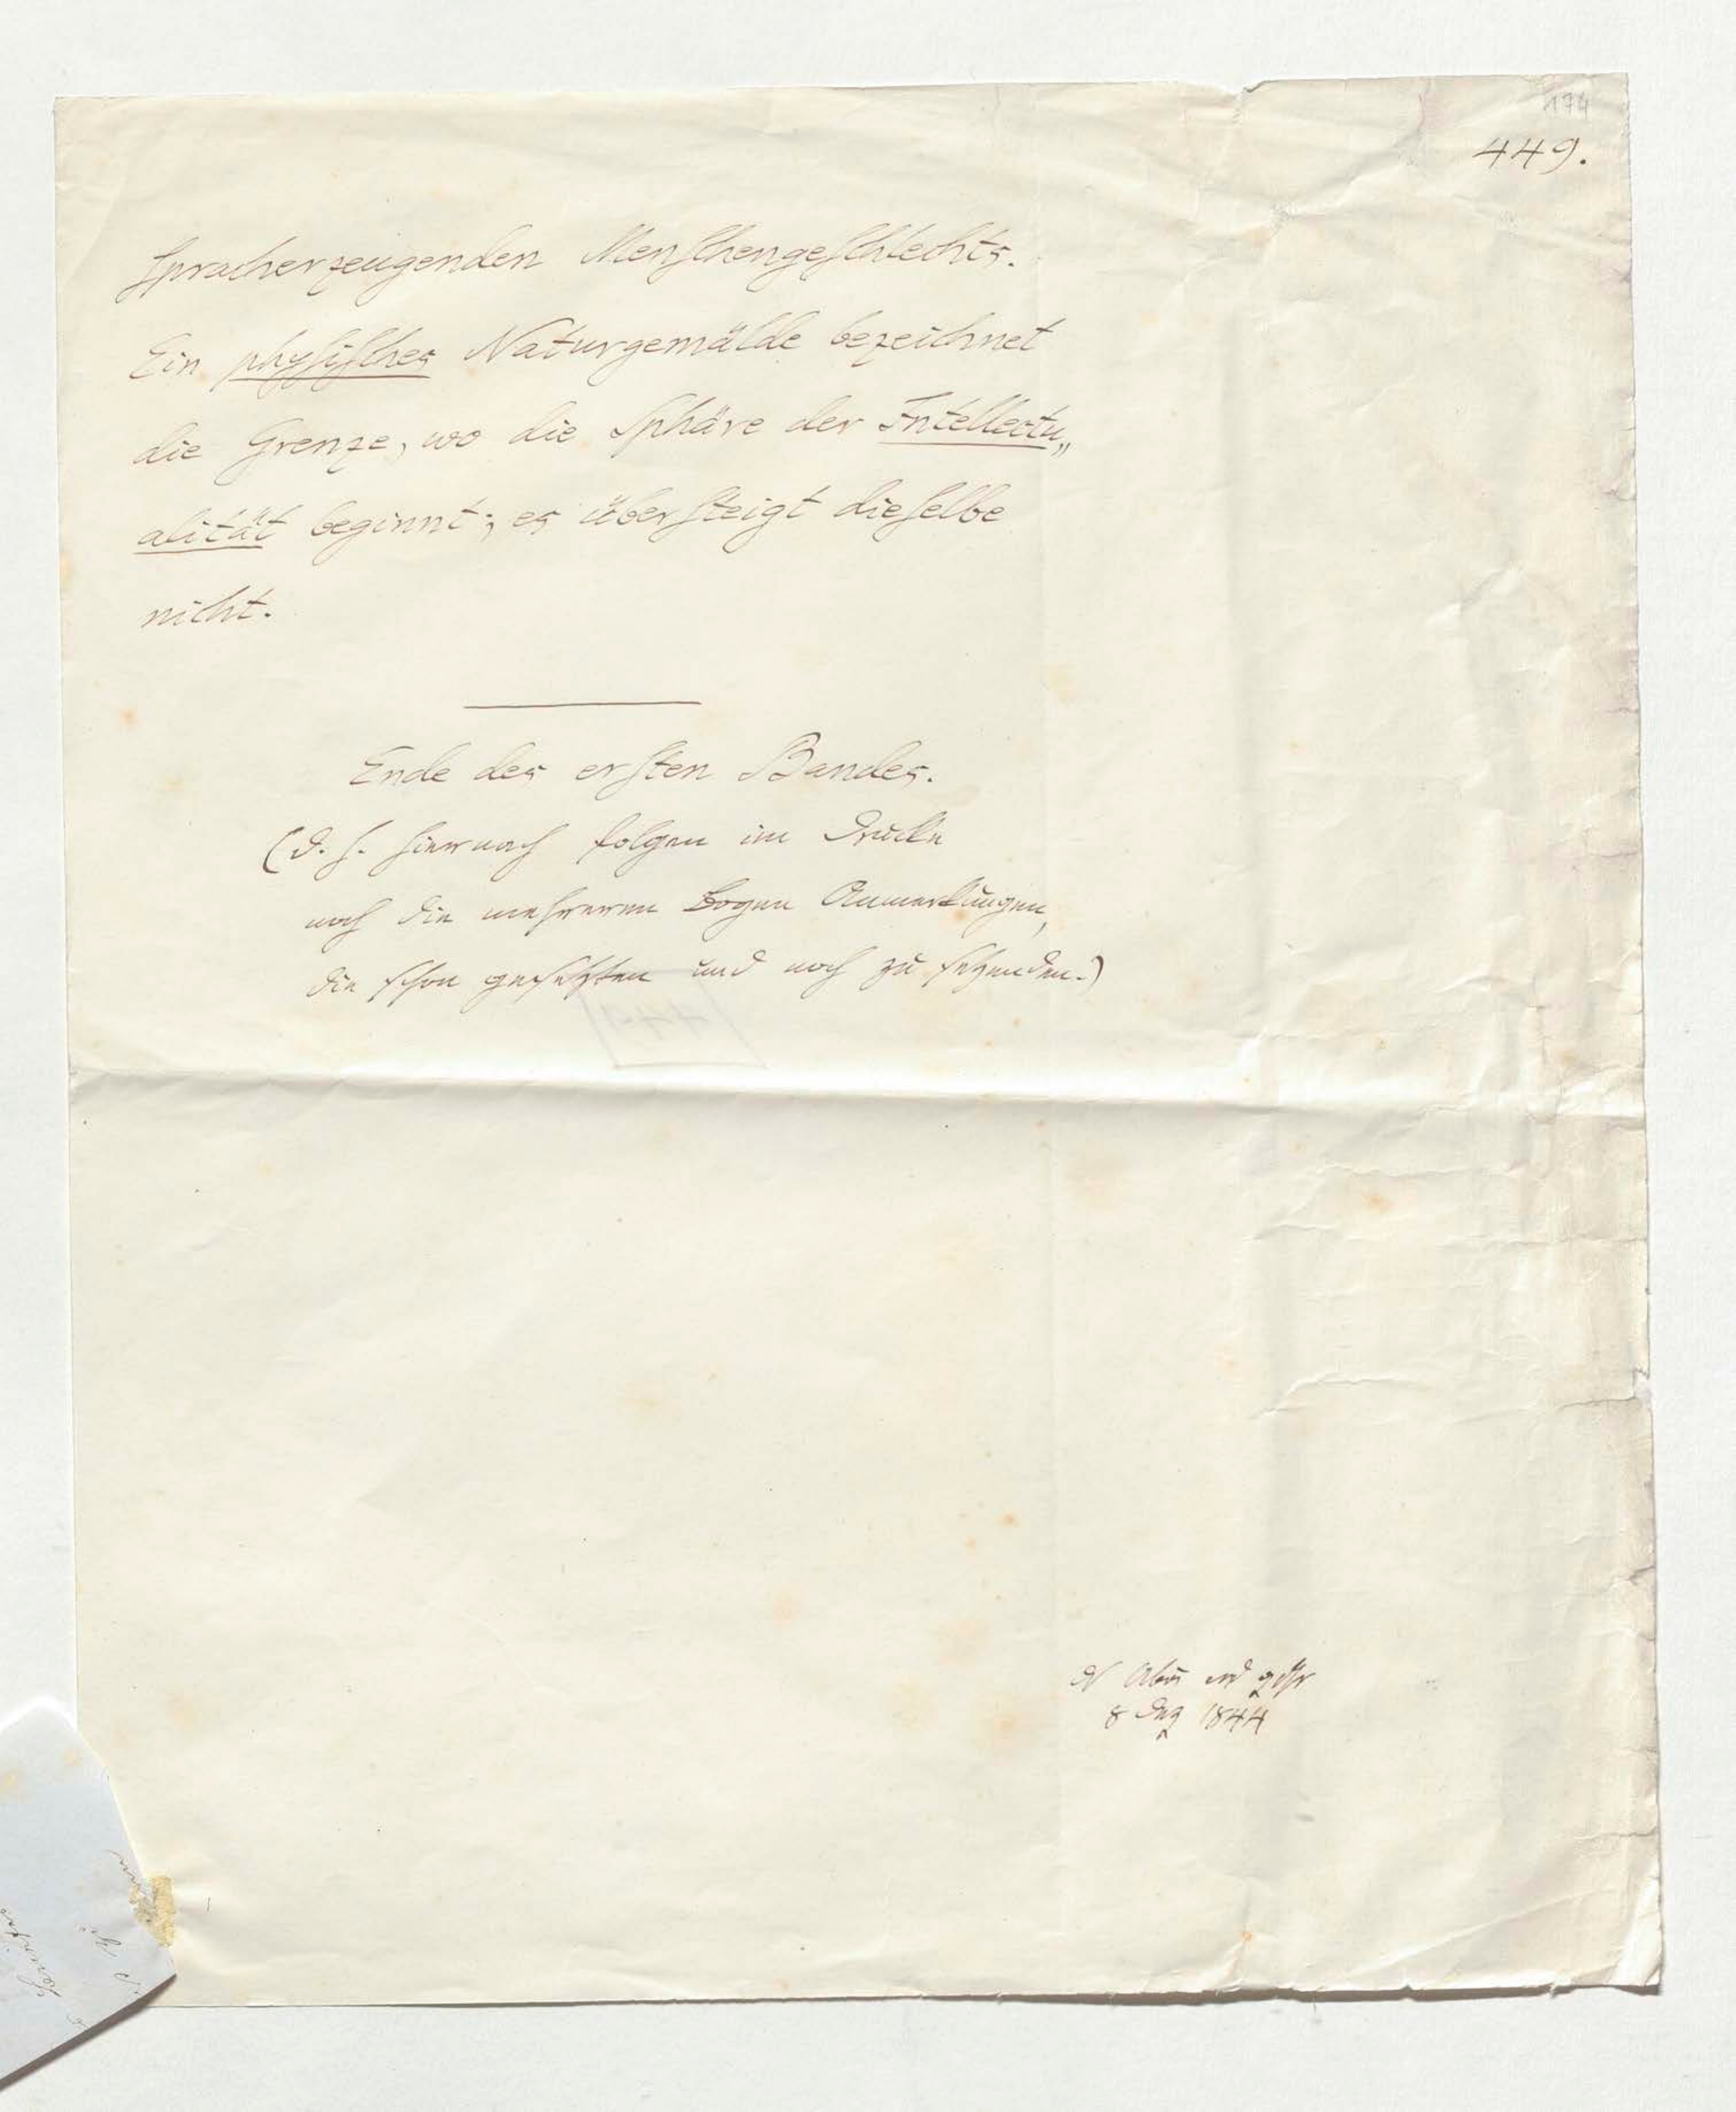 174
449.
spracherzeugenden Menschengeschlechts.
Ein physisches Naturgemälde bezeichnet
die Grenze, wo die Sphäre der Intellectu„
alität beginnt; es übersteigt dieselbe
nicht.
Ende des ersten Bandes.
(d. h. hiernach folgen im Drucke
noch die mehreren Bogen Anmerkungen,
die schon gesetzten und noch zu setzenden.)
8 Dez 1844